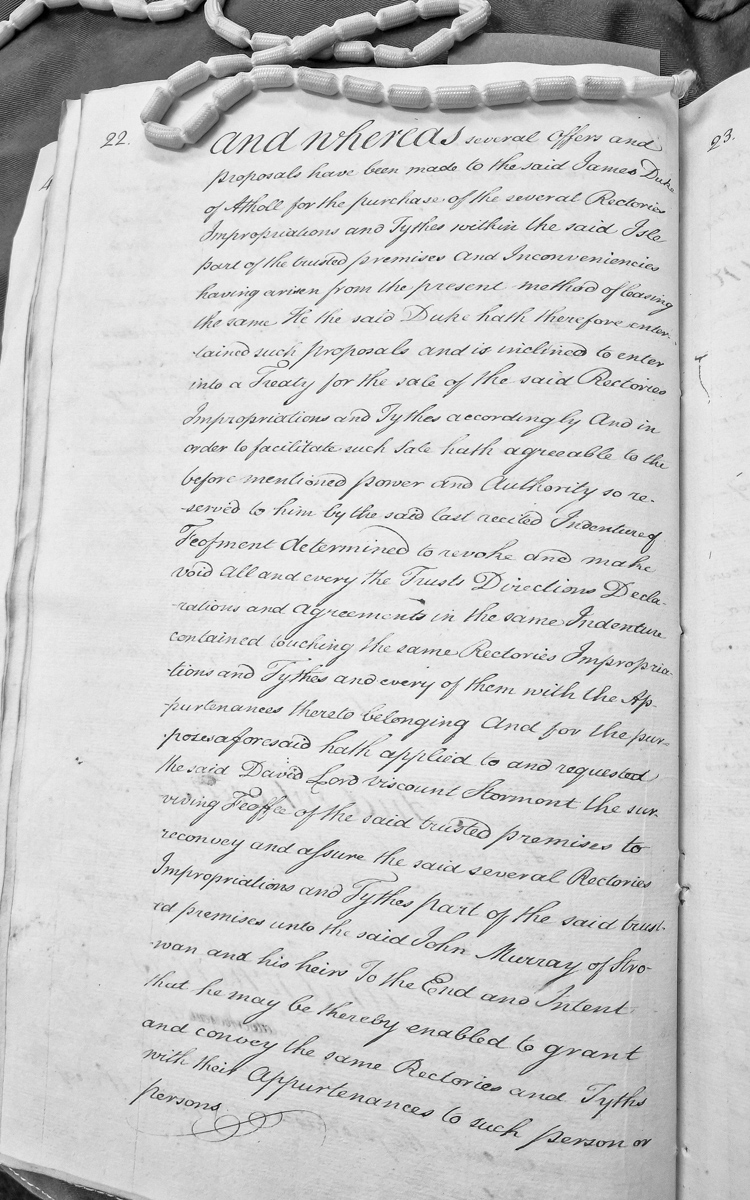 22.
and whereas several Offers and
proposals have been made to the said James Duke
of Atholl for the purchase of the several Rectories
Impropriations and Tythes within the said Isle
part of the trusted premises And Inconveniencies
having arisen from the present method of leasing
the same He the said Duke hath therefore enter-
-tained such proposals and is inclined to enter
into a Treaty for the sale of the said Rectories
Impropriations and Tythes accordingly And in
order to facilitate such Sale hath agreeable to the
before mentioned power and Authority so re-
-served to him by the said last recited Indenture of
Feofment determined to revoke and make
void all and every the Trusts Directions Decla-
-rations and Agreements in the same Indenture
contained touching the same Rectories Impropria-
-tions and Tythes and every of them with the Ap-
-purtenances thereto belonging And for the pur-
-poses aforesaid hath applied to and requested
the said David Lord Viscount Stormont the sur-
viving Feoffee of the said trusted premises to
reconvey and assure the said several Rectories
Impropriations and Tythes part of the said trust-
ed premises unto the said John Murray of Stro-
-wan and his heirs To the End and Intent
that he may be thereby enabled to grant
and convey the same Rectories and Tyths
with their Appurtenances to such person or
persons
23.